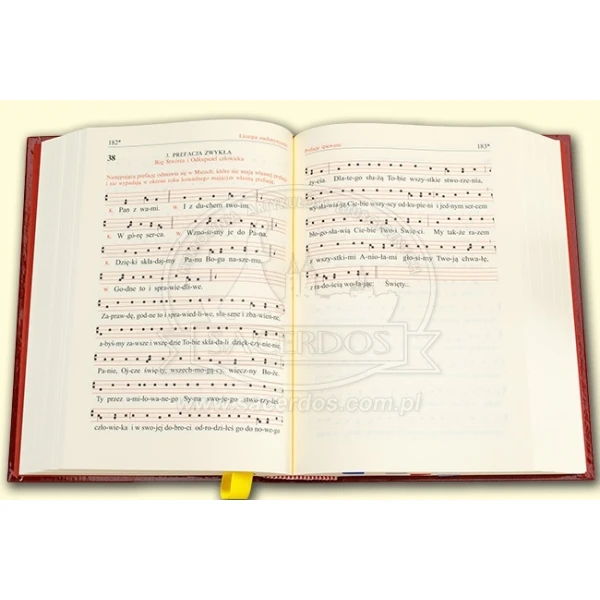 182*
Liturgia eucharystyczna
38
1. PREFACJA ZWYKŁA
Bóg Stwórca i Odkupiciel człowieka
Następującą prefację odmawia się w Mszach, które nie mają własnej prefacji
i nie wypadają w okresie roku kościelnego mającym własną prefację.
K. Pan z wa-mi. W. I z du-chem two-im.
K. W gó-rę ser-ca. W. Wzno-si-my je do Pa-na.
K. Dzię-ki skła-daj-my Pa-nu Bo-gu na-sze-mu.
W. Go-dne to i spra-wie-dli-we.
Za-praw-dę, god-ne to i spra-wied-li-we, słu-szne i zba-wien-ne,
a-byś-my za-wsze i wszę-dzie To-bie skła-da-li dzięk-czy-nie-nie,
Pa-nie, Oj-cze świę-ty, wszech-mo-gą-cy, wiecz-ny Bo-że.
Ty przez u-mi-ło-wa-ne-go Sy-na swo-je-go stwo-rzy-łeś
czło-wie-ka i w swo-jej do-bro-ci od-ro-dzi-łeś go do no-we-go
Prefacje śpiewane
183*
ży-cia. Dla-te-go słu-żą To-bie wszy-stkie stwo-rze-nia,
wy-sła-wia-ją Cie-bie wszy-scy od-ku-pie-ni i jed-nym ser-cem
bło-go-sła-wią Cie-bie Two-i Świę-ci. My tak-że ra-zem
z wszy-stki-mi A-nio-ła-mi gło-si-my Two-ją chwa-łę,
z ra-do-ścią wo-ła-jąc: Święty...
SACERDOS
www.sacerdos.com.pl